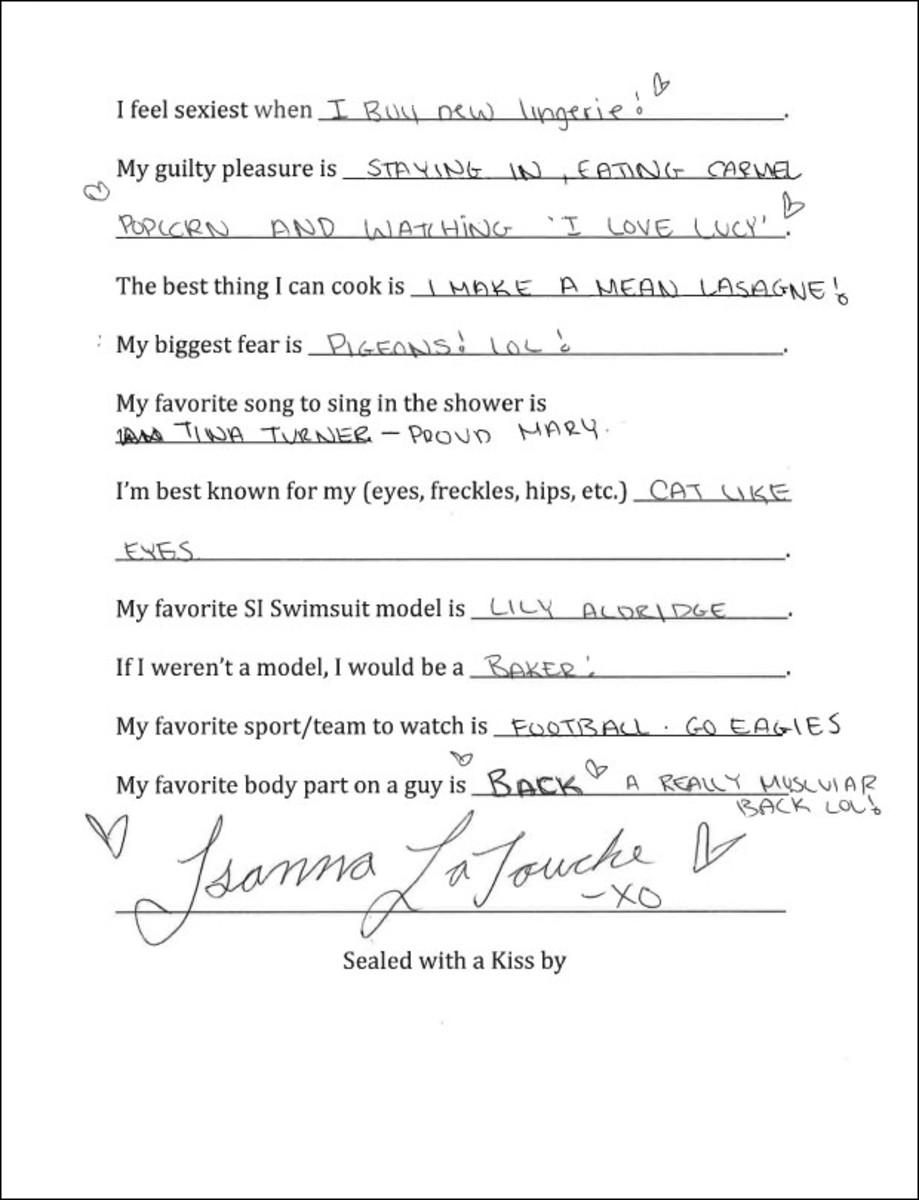 I feel sexiest when I Buy new lingerie!.
My guilty pleasure is STAYING IN, EATING CARMEL
POPCORN AND WATCHING 'I LOVE LUCY'.
The best thing I can cook is I MAKE A MEAN LASAGNE!
My biggest fear is PIGEONS! LOL!.
My favorite song to sing in the shower is
TINA TURNER - PROUD MARY.
I'm best known for my (eyes, freckles, hips, etc.) CAT LIKE
EYES.
My favorite SI Swimsuit model is LILY ALDRIDGE.
If I weren't a model, I would be a BAKER!.
My favorite sport/team to watch is FOOTBALL. GO EAGLES
My favorite body part on a guy is BACK A REALLY MUSCULAR
BACK LOL!
Isanna LaTouche
-XO
Sealed with a Kiss by